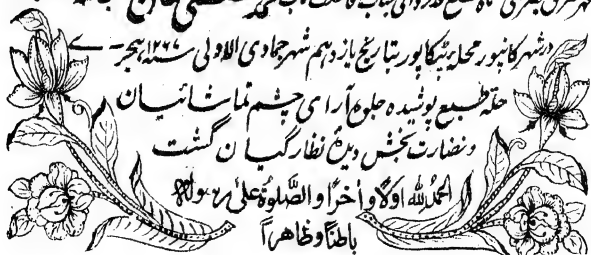 در شهر کانپور محله پٹکاپور بتاریخ یازدهم شهر جمادی الاولی سنه ۱۲۶۷ هجری
حلّه طبع پوشیده جلوه آرای چشم تماشائیان
و نضارت بخش دیدهٔ نظارگیان گشت
الحمدُ لله اولًا و آخرًا و الصَّلوٰة علیٰ رسوله
باطنًا و ظاهرًا